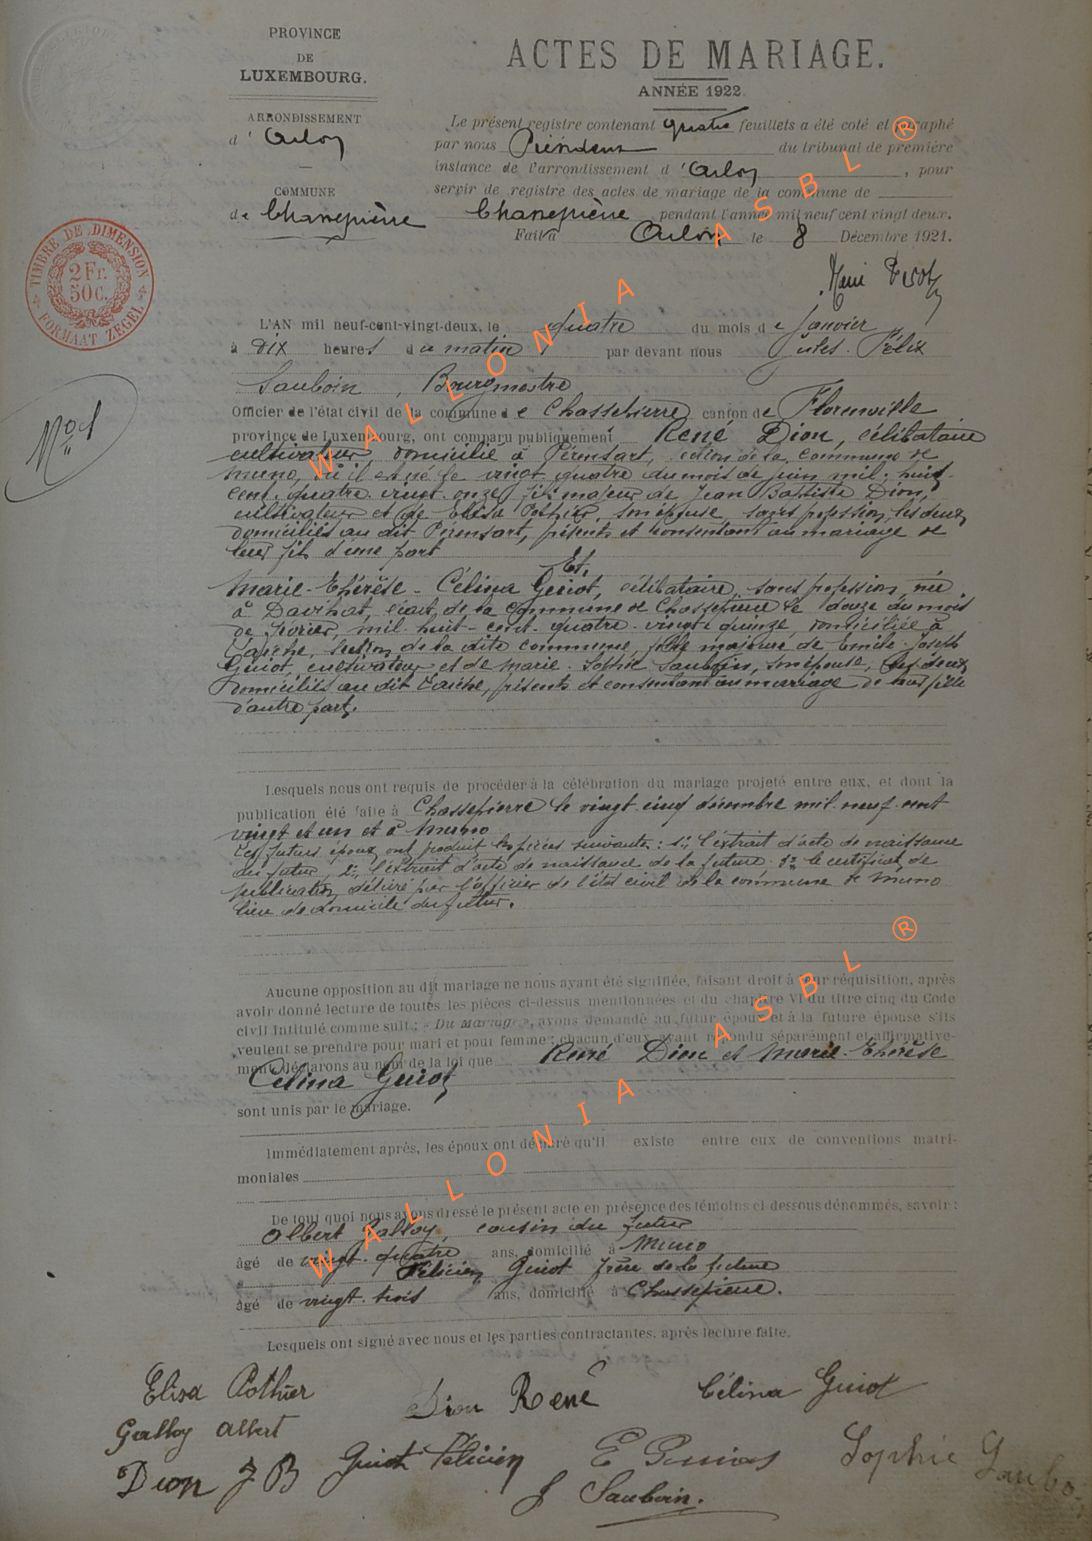 PROVINCE
DE
LUXEMBOURG.
ARRONDISSEMENT
d' Arlon
COMMUNE
de Chassepierre
ACTES DE MARIAGE.
ANNÉE 1922.
Le présent registre contenant quatre feuillets a été coté et paraphé
par nous Président du tribunal de première
instance de l'arrondissement d'Arlon, pour
servir de registre des actes de mariage de la commune de
Chassepierre pendant l'année mil neuf cent vingt deux.
Fait à Arlon le 8 Décembre 1921.
TIMBRE DE DIMENSION
2 Fr.
50 C.
FORMAAT ZEGEL
No 1
L'AN mil neuf-cent-vingt-deux, le quatre du mois de Janvier
à DIX heures du matin par devant nous Jules Félix
Sauboin, Bourgmestre
Officier de l'état civil de la commune de Chassepierre canton de Florenville
province de Luxembourg, ont comparu publiquement René Dion, célibataire
cultivateur domicilié à Pérensart, section de la commune de
Muno, où il est né le vingt quatre du mois de juin mil huit
cent quatre vingt onze, fils majeur de Jean Baptiste Dion,
cultivateur et de Elisa Pothier, son épouse, sans profession, les deux
domiciliés au dit Pérensart, présents et consentant au mariage de
leur fils d'une part
Et,
Marie-Thérèse-Célina Guiot, célibataire, sans profession, née
à Davihat, écart de la commune de Chassepierre le douze du mois
de février, mil huit-cent-quatre-vingt quinze, domiciliée à
Laiche, section de la dite commune, fille majeure de Emile-Joseph
Guiot, cultivateur et de Marie-Sophie Sauboin, son épouse, les deux
domiciliés au dit Laiche, présents et consentant au mariage de leur fille
d'autre part.
Lesquels nous ont requis de procéder à la célébration du mariage projeté entre eux, et dont la
publication été faite à Chassepierre le vingt cinq décembre mil neuf cent
vingt et un et à Muno
Les futurs époux ont produit les pièces suivantes: 1° l'extrait d'acte de naissance
du futur, 2° l'extrait d'acte de naissance de la future. 3° le certificat de
publication délivré par l'officier de l'état civil de la commune de Muno
lieu de domicile du futur.
Aucune opposition au dit mariage ne nous ayant été signifiée, faisant droit à leur réquisition, après
avoir donné lecture de toutes les pièces ci-dessus mentionnées et du chapitre VI du titre cinq du Code
civil intitulé comme suit: « Du Mariage », avons demandé au futur époux et à la future épouse s'ils
veulent se prendre pour mari et pour femme; chacun d'eux ayant répondu séparément et affirmative-
ment, déclarons au nom de la loi que René Dion et Marie-Thérèse
Célina Guiot
sont unis par le mariage.
Immédiatement après, les époux ont déclaré qu'il existe entre eux de conventions matri-
moniales
De tout quoi nous avons dressé le présent acte en présence des témoins ci dessous dénommés, savoir:
Albert Galloy, cousin du futur
âgé de vingt quatre ans, domicilié à Muno
Félicien Guiot frère de la future
âgé de vingt trois ans, domicilié à Chassepierre.
Lesquels ont signé avec nous et les parties contractantes, après lecture faite.
Elisa Pothier Dion René Célina Guiot
Galloy Albert
Dion J B Guiot Félicien Sophie Saubo
J Sauboin.
WALLONIA ASBL ®
WALLONIA ASBL ®